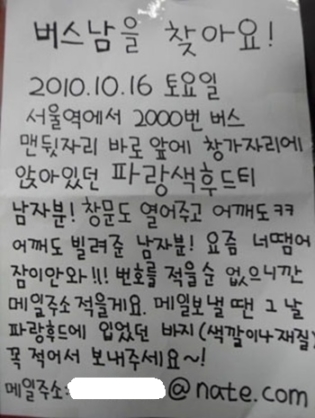 버스남을 찾아요!
2010.10.16 토요일
서울역에서 2000번 버스
맨뒷자리 바로앞에 창가자리에
앉아있던 파랑색후드티
남자분! 창문도 열어주고 어깨도ㅋㅋ
어깨도 빌려준 남자분! 요즘 너땜어
잠이안와!!! 번호를 적을순 없으니깐
메일주소적을게요. 메일보낼땐 그 날
파랑후드에 입었던 바지(색깔이나재질)
꼭 적어서 보내주세요~!
메일주소: @nate.com